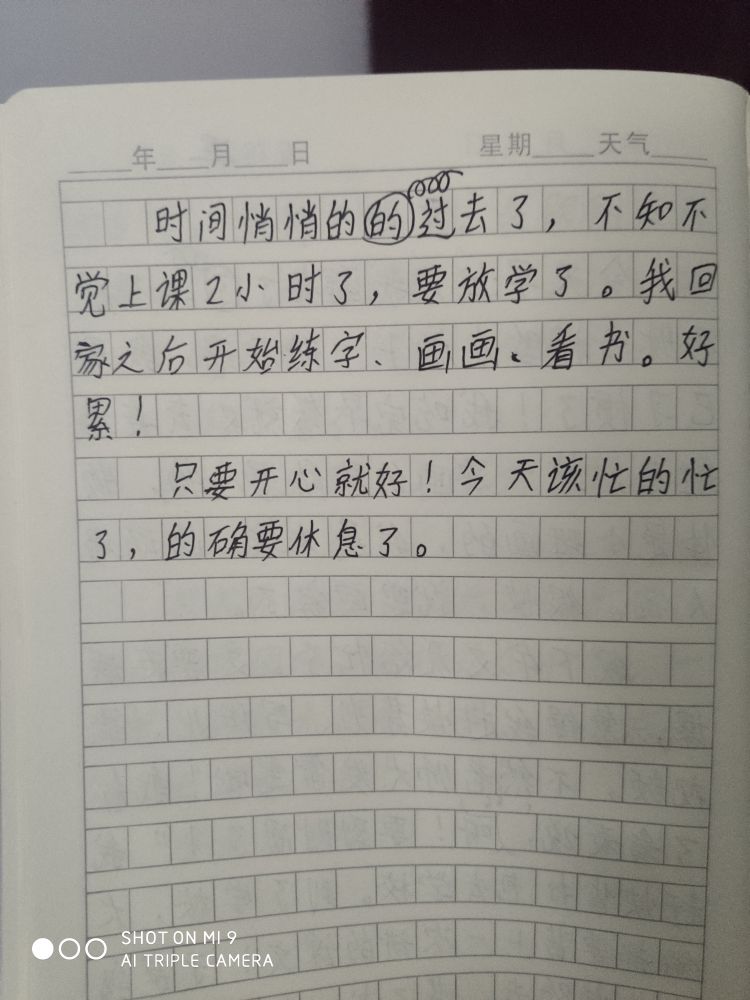 年 月 日 星期 天气
时间悄悄的的过去了，不知不
觉上课2小时了，要放学了。我回
家之后开始练字、画画、看书。好
累！
只要开心就好！今天该忙的忙
了，的确要休息了。
SHOT ON MI 9
AI TRIPLE CAMERA